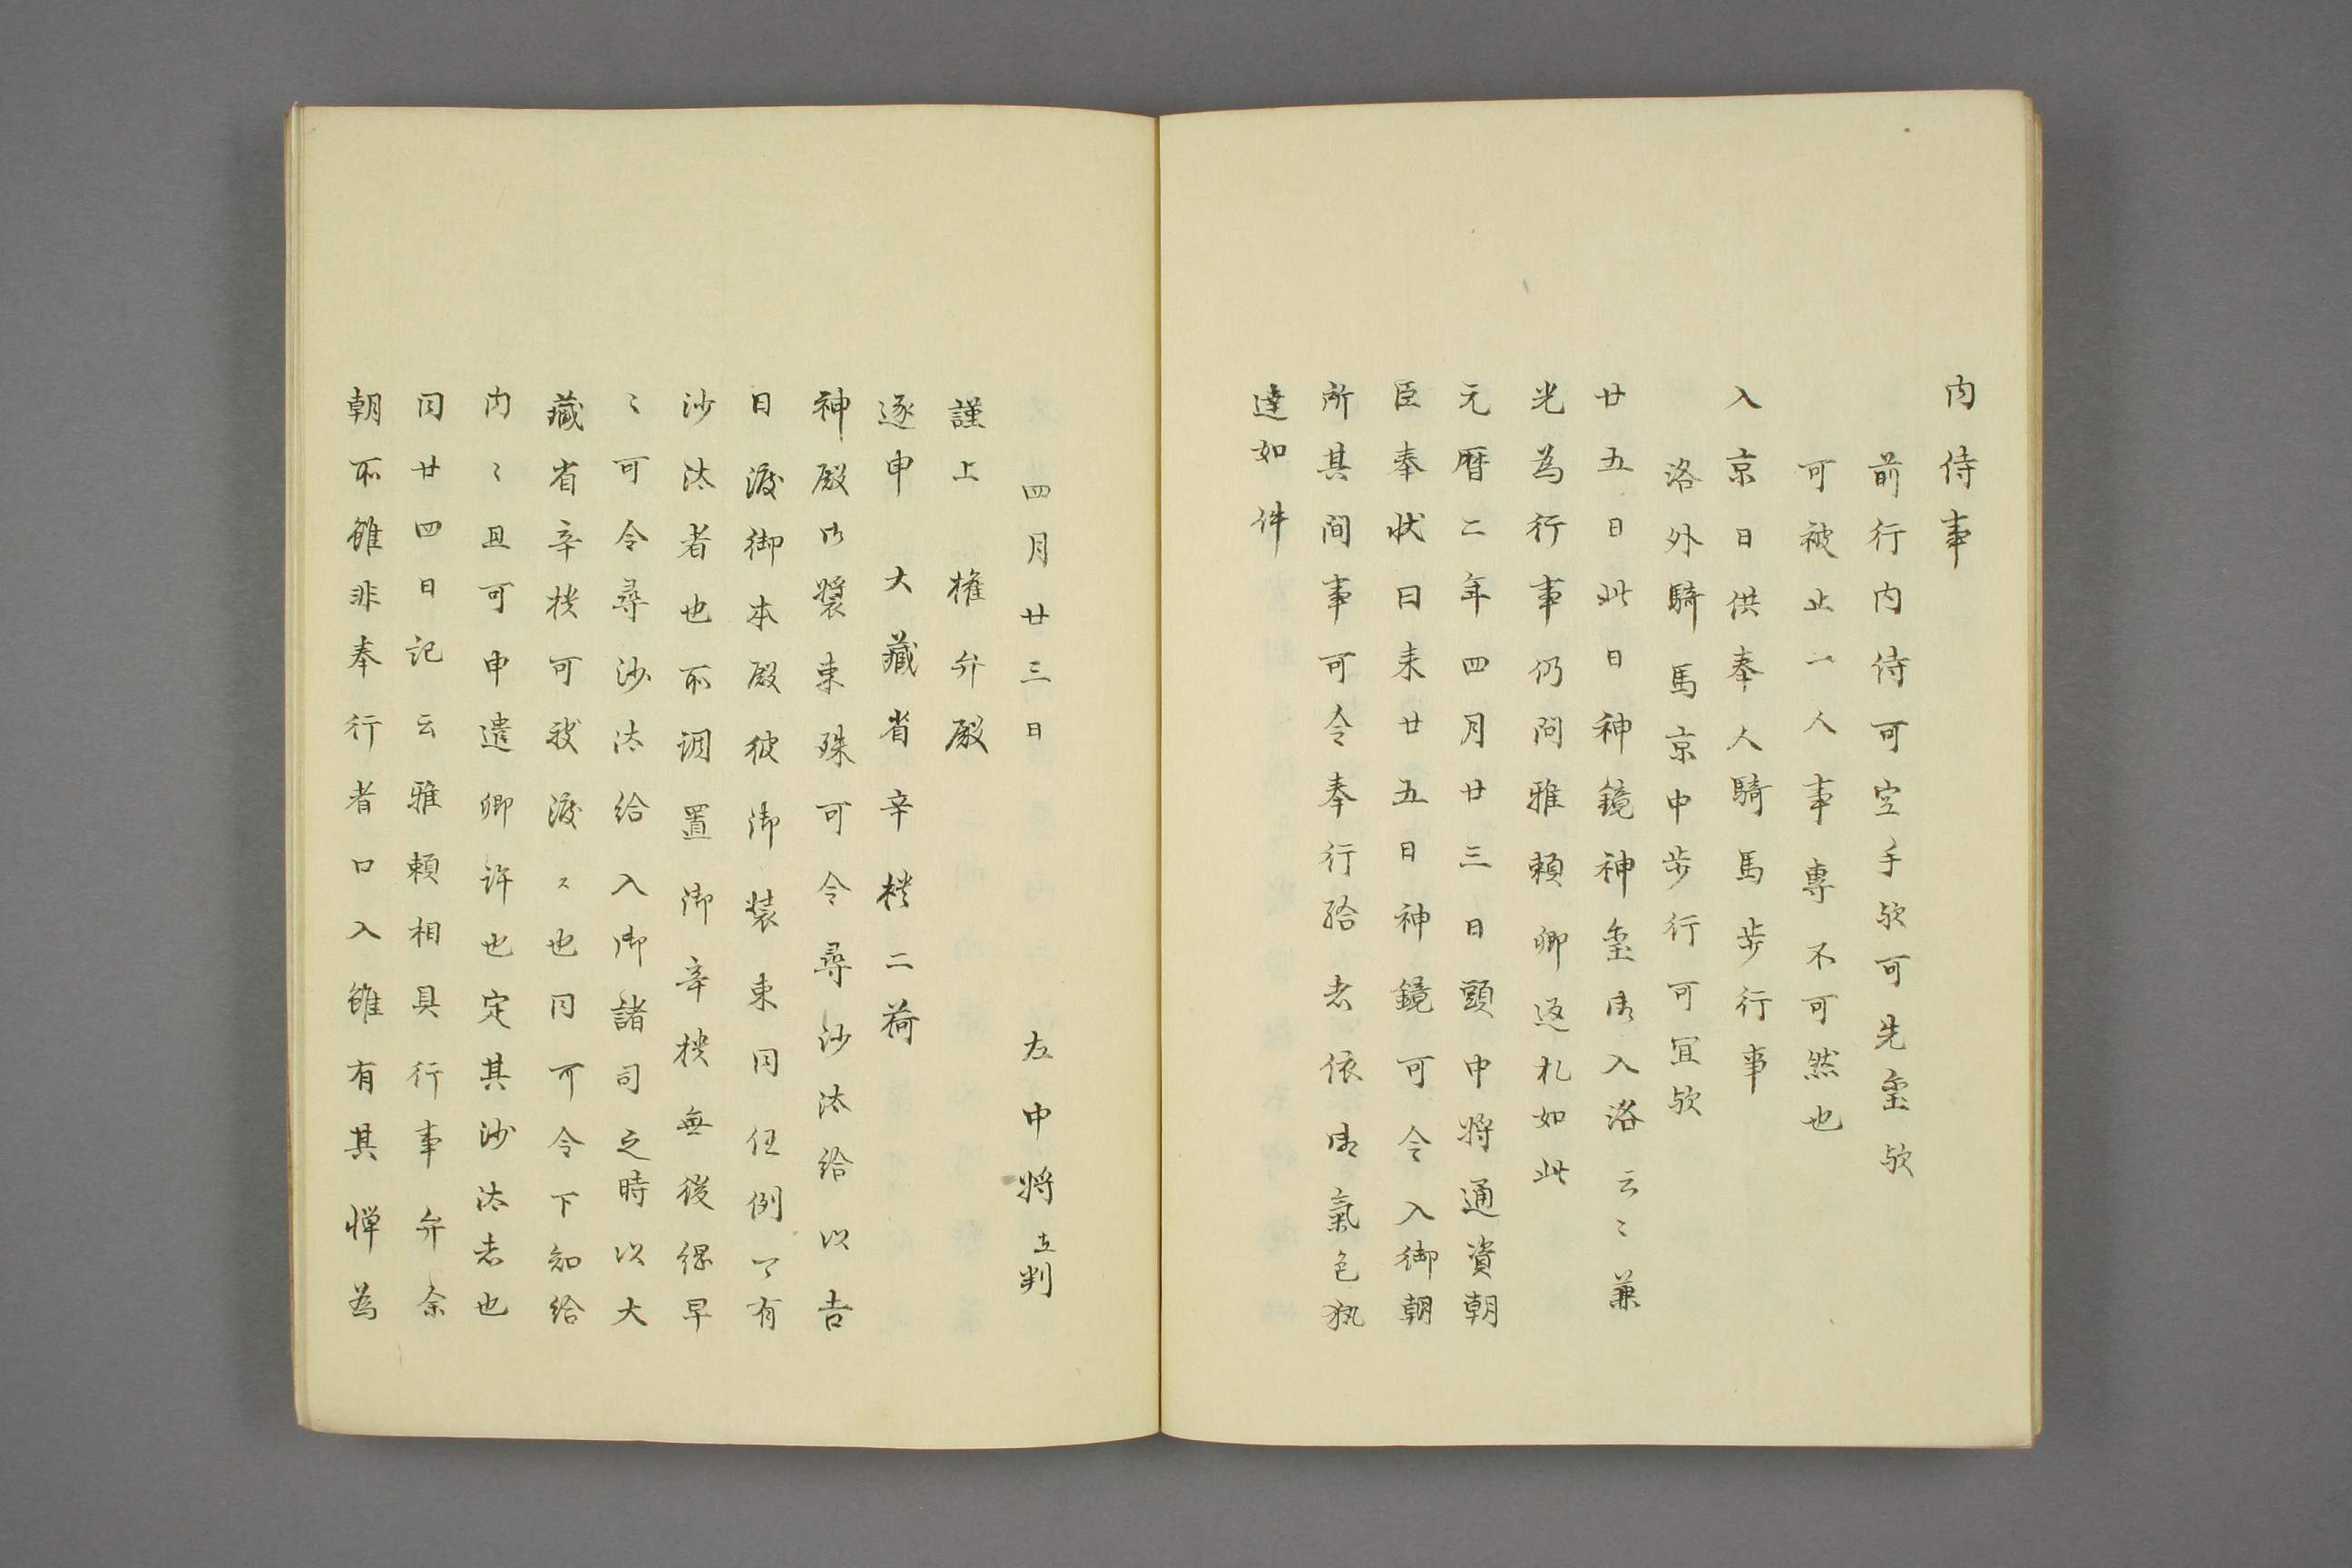 内侍事
前行内侍可空手欤可先璽欤
可被止一人事専不可然也
入京日供奉人騎馬歩行事
洛外騎馬京中歩行可宜欤
廿五日此日神鏡神璽御入洛云〻兼
光為行事仍問雅頼卿返札如此
元暦二年四月廿三日頭中将通資朝
臣奉状曰来廿五日神鏡可令入御朝
所其間事可令奉行給者依御氣色執
達如件
四月廿三日　左中将在判
謹上　権弁殿
逐申　大藏省辛櫃二荷
神殿御装束殊可令尋沙汰給以吉
日渡御本殿彼御装束同任例可有
沙汰者也所調置御辛櫃無後得早
〻可令尋沙汰給入御諸司之時以大
藏省辛櫃可被渡〻也同可令下知給
内〻且可申遣卿許也定其沙汰者也
同廿四日記云雅頼相具行事弁余
朝所雖非奉行者口入雖有其憚為